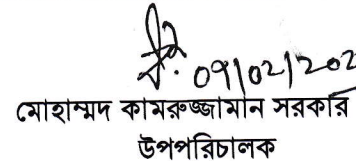 09/02/202
মোহাম্মদ কামরুজ্জামান সরকার
উপপরিচালক